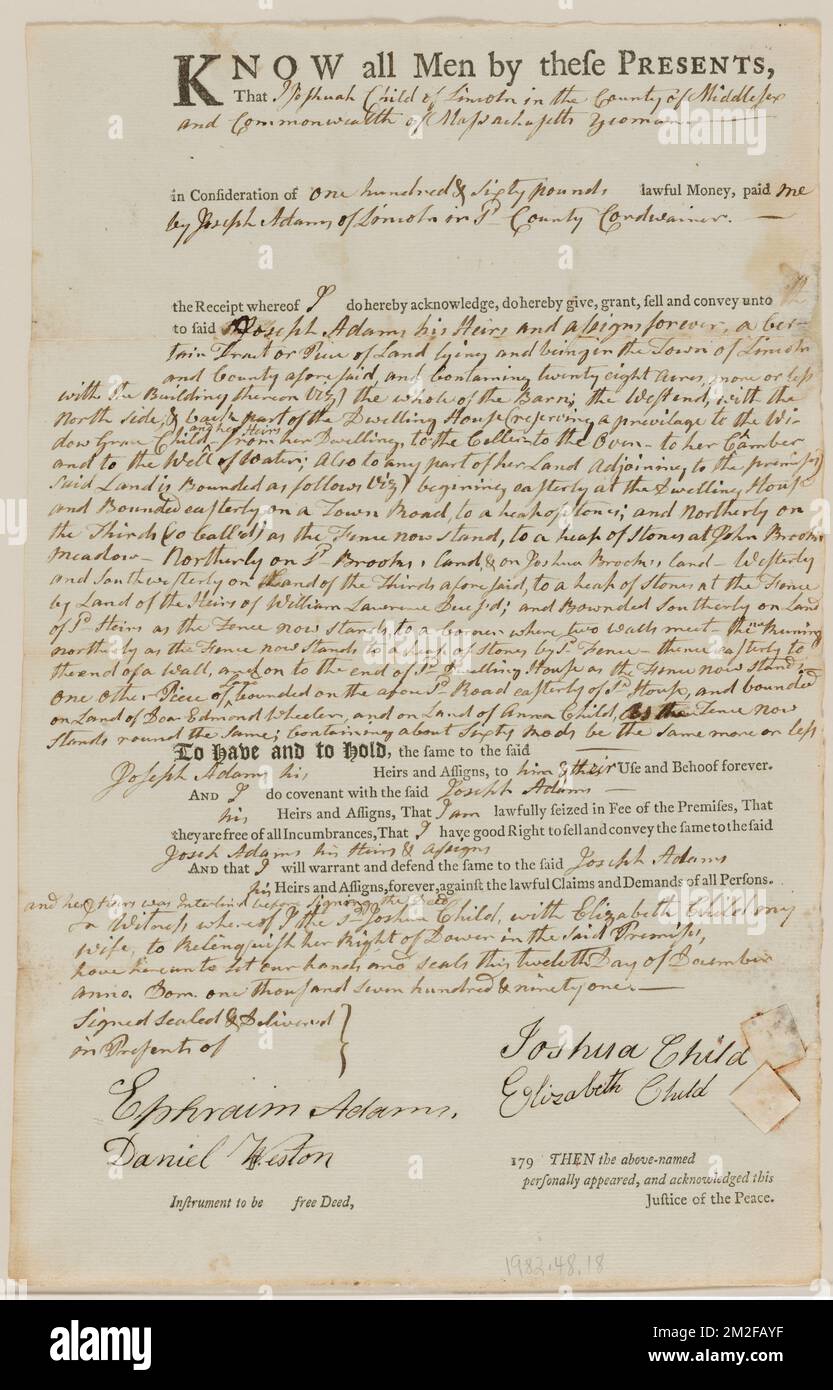 KNOW all Men by theſe PRESENTS,
That I Joshuah Child of Lincoln in the County of Middlesex
and Commonwealth of Massachusetts yeoman
in Conſideration of one hundred & sixty pounds lawful Money, paid me
by Joseph Adams of Lincoln in sd County Cordwainer.
the Receipt whereof I do hereby acknowledge, do hereby give, grant, ſell and convey unto the
to said Joseph Adams his Heirs and assigns forever, a Cer-
tain Tract or Piece of Land lying and being in the Town of Lincoln
and County aforesaid, and Containing twenty eight acres, more or less
with the Building thereon Viz) the whole of the Barn; the West end, with the
North side, & back part of the Dwelling House (reserving a privilage to the Wi-
and her Heirs
dow Grace Child from her Dwelling, to the Celler to the Oven - to her Camber
and to the Well of Water; Also to any part of her Land Adjoining to the premises)
Said Land is Bounded as follows Viz) begining easterly at the Dwelling House
and Bounded easterly on a Town Road, to a heap of stones; and Northerly on
the Thirds (so Call'ed) as the Fence now stand, to a heap of Stones at John Brooks
meadow - Northerly on sd Brooks, land, & on Joshua Brooks's land - Westerly
and Southwesterly on Land of the Thirds aforesaid, to a heap of Stones at the Fence
by Land of the Heirs of William Lawrence Deces'd; and Bownded Southerly on Land
of sd Heirs as the Fence now stands, to a Corner where two walls meet - then Runing
northerly as the Fence now Stands to a heap of Stones by sd Fence - thence easterly to
the end of a Wall, and on to the end of sd Dwelling House as the Fence now stand;
one other Piece of Land bounded on the above sd Road easterly of sd House, and bounded
on Land of Dea. Edmond Wheeler, and on Land of Anna Child, as the Fence now
stands round the same; Containing about Sixty Rods be the same more or less
To Have and to Hold, the same to the said
Joseph Adams his Heirs and Aſſigns, to him & their Uſe and Behoof forever.
AND I do covenant with the ſaid Joseph Adams
his Heirs and Aſſigns, That I am lawfully ſeized in Fee of the Premiſes, That
they are free of all Incumbrances, That I have good Right to ſell and convey the ſame to the ſaid
Joseh Adams his Heirs & assigns
AND that I will warrant and defend the ſame to the ſaid Joseph Adams
his Heirs and Aſſigns, forever, againſt the lawful Claims and Demands of all Perſons.
and her Heirs was Interlind before signing the Deed
In Witness whereof I the sd Joshua Child, with Elizabeth Child my
wife, to Relinquish her Right of Dower in the said Premises,
have hereunto set our hands and seals this twelvth Day of December
anno. Dom. one thousand seven hundred & ninety one.
Signed sealed & Delivered
in Presents of
Joshua Child
Elizabeth Child
Ephraim Adams.
Daniel Weston
179 THEN the above-named
perſonally appeared, and acknowledged this
Inſtrument to be free Deed, Juſtice of the Peace.
1982.48.18
alamy
Image ID: 2M2FAYF
www.alamy.com